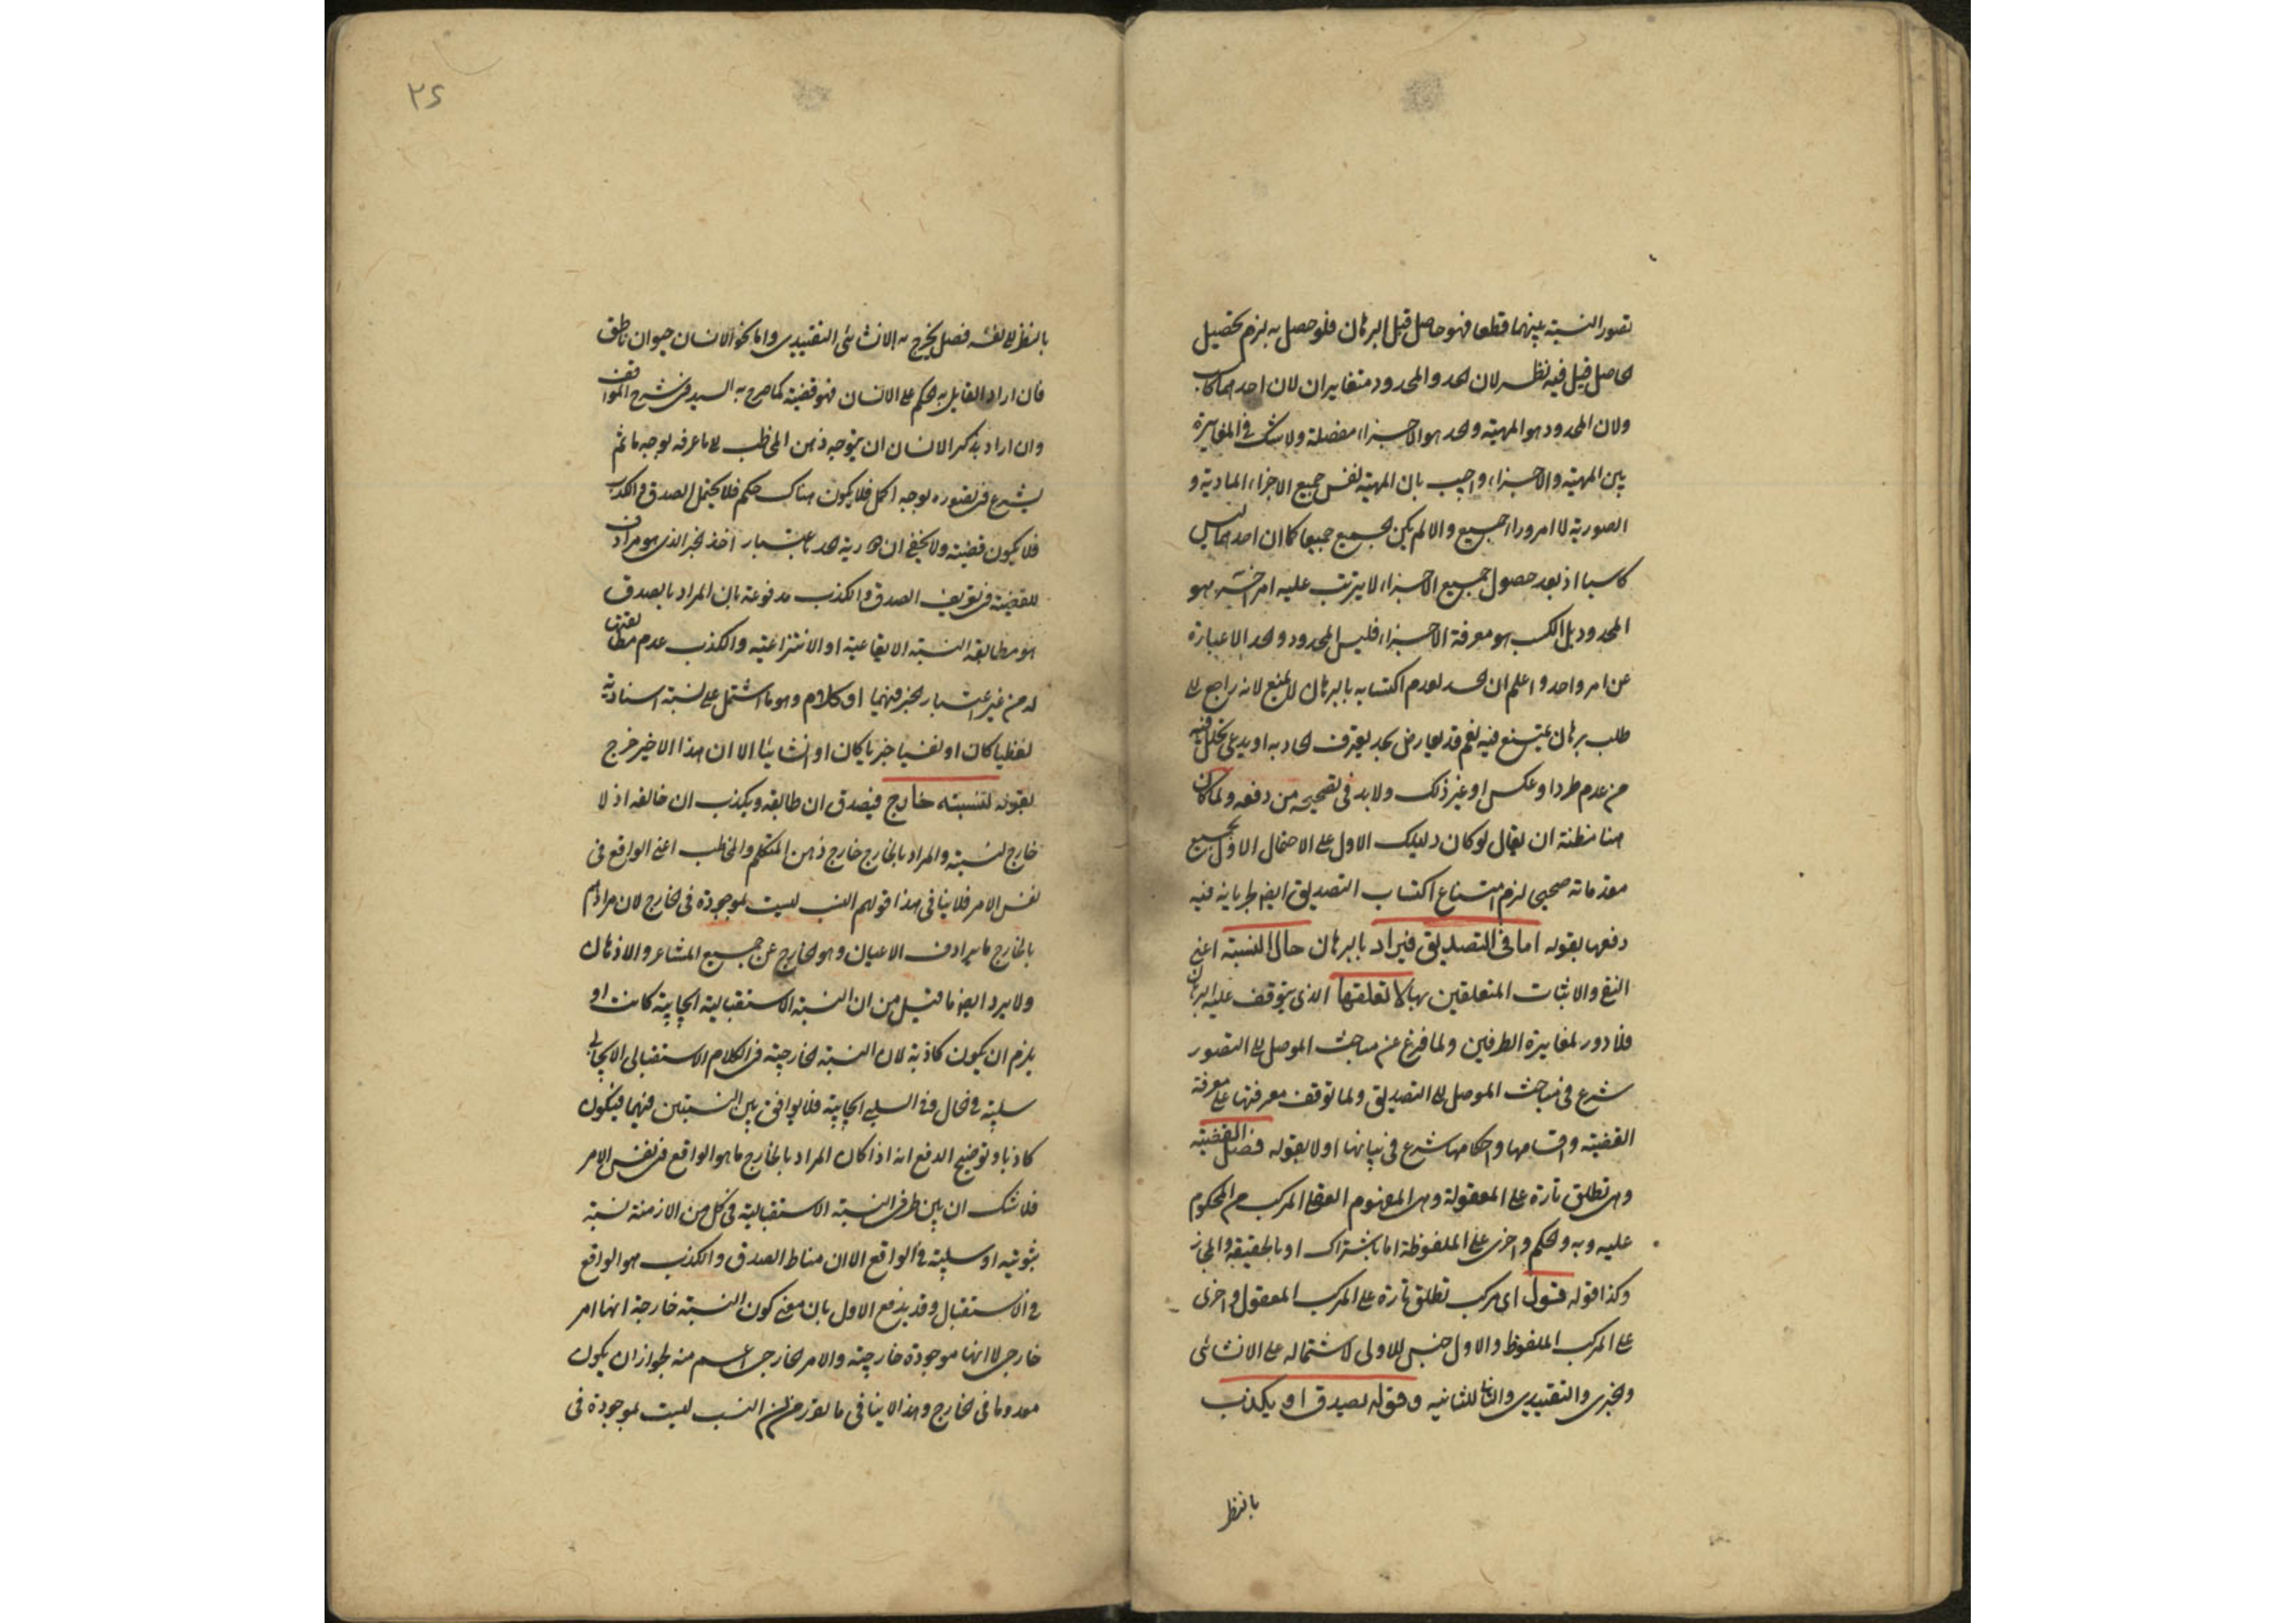 تصور النسبة بينهما قطعا فهو حاصل قبل البرهان فلو حصل به لزم تحصيل
الحاصل قيل فيه نظر لان الحد والمحدود متغايران لان احدهما كاسب
ولان المحدود هو المهية والحد هو الاجزاء مفصلة ولا شك فى المغايرة
بين المهية والاجزاء واجيب بان المهية نفس جميع الاجزاء المادية و
الصورية لا امر وراء الجميع والا لم يكن الجميع جميعا كما ان احدهما ليس
كاسبا اذ بعد حصول جميع الاجزاء لا يترتب عليه امر آخر هو
المحدود بل الكسب هو معرفة الاجزاء فليس المحدود والحد الا عبارة
عن امر واحد واعلم ان الحد لعدم اكتسابه بالبرهان لا يمنع لانه راجع الى
طلب برهان يمتنع فيه نعم قد يعارض بحد يعترف الحاد به او يدعى بخلل فيه
من عدم طرد او عكس او غير ذلك ولا بد فى تصحيحه من دفعه ولما كان
هنا مظنة ان يقال لو كان دليلك الاول على الاحتمال الاول بجميع
مقدماته صحيحا لزم امتناع اكتساب التصديق ايضا لجريانه فيه
دفعها بقوله اما فى التصديق فيراد بالبرهان حال النسبة اعنى
النفى والاثبات المتعلقين بها لا تعلقها الذى يتوقف عليه البرهان
فلا دور لمغايرة الطرفين ولما فرغ عن مباحث الموصل الى التصور
شرع فى مباحث الموصل الى التصديق ولما توقف معرفتها على معرفة
القضية واقسامها واحكامها شرع فى بيانها اولا بقوله فصل القضية
وهى تطلق تارة على المعقولة وهى المفهوم العقلى المركب من المحكوم
عليه وبه والحكم واخرى على الملفوظة اما باشتراك او بالحقيقة والمجاز
وكذا قوله قول اى مركب تطلق تارة على المركب المعقول واخرى
على المركب الملفوظ والاول جنس للاولى لاشتماله على الانشائى
والخبرى والتقييدى والثانى للثانية وقوله يصدق او يكذب
بالنظر
٣٦
بالنظر الى نفسه فصل يخرج به الانشائى التقييدى واما نحو الانسان حيوان ناطق
فان اراد القايل به الحكم على الانسان فهو قضية كما صرح به السيد فى شرح المواقف
وان اراد بذكر الانسان ان يتوجه ذهن المخاطب الى ما عرفه بوجه ما ثم
يشرع فى تصوره بوجه اكمل فلا يكون هناك حكم فلا يحتمل الصدق والكذب
فلا يكون قضية ولا يخفى ان دورية الحد باعتبار اخذ الخبر الذى هو مرادف
للقضية فى تعريف الصدق والكذب مدفوعة بان المراد بالصدق
هو مطابقة النسبة الايقاعية او الانتزاعية والكذب عدم مطابقتها
له من غير اعتبار الخبر فيهما او كلام وهو ما اشتمل على نسبة اسنادية
لفظيا كان او نفسيا خبريا كان او انشائيا الا ان هذا الاخير خرج
بقوله لنسبته خارج فيصدق ان طابقه ويكذب ان خالفه اذ لا
خارج لنسبته والمراد بالخارج خارج ذهن المتكلم والمخاطب اعنى الواقع فى
نفس الامر فلا ينافى هذا قولهم النسب ليست بموجودة فى الخارج لان مرادهم
بالخارج ما يرادف الاعيان وهو الخارج عن جميع المشاعر والاذهان
ولا يرد ايضا ما قيل من ان النسبة الاستقبالية ايجابية كانت او
يلزم ان يكون كاذبة لان النسبة الخارجية فى الكلام الاستقبالى الايجابى
سلبية فى الحال وفى السلبى ايجابية فلا يوافق بين النسبتين فيهما فيكون
كاذبا وتوضيح الدفع انه اذا كان المراد بالخارج ما هو الواقع فى نفس الامر
فلا شك ان بين طرفى النسبة الاستقبالية فى كل من الازمنة نسبة
ثبوتية او سلبية فى الواقع الا ان مناط الصدق والكذب هو الواقع
فى الاستقبال وقد يدفع الاول بان معنى كون النسبة خارجة انها امر
خارجى لا انها موجودة خارجية والامر الخارجى اعم منه لجواز ان يكون
معدوما فى الخارج وهذا لا ينافى ما تقرر من ان النسب ليست بموجودة فى